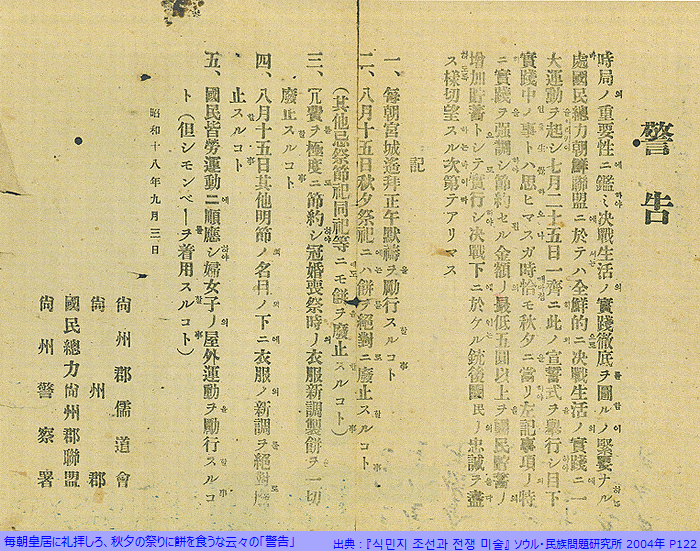 警告
時局ノ重要性ニ鑑ミ決戰生活ノ實踐徹底ヲ圖ルノ緊要ナル
處國民總力朝鮮聯盟ニ於テハ全鮮的ニ決戰生活ノ實踐ニ一
大運動ヲ起シ七月二十五日一齊ニ此ノ宣誓式ヲ擧行シ日下
實踐中ノ事トハ思ヒマスガ時恰モ秋夕ニ當リ左記事項ノ特
ニ實踐ヲ强調シ節約セル金額ノ最低五圓以上ヲ國民貯蓄ノ
增加貯蓄トシテ實行シ決戰下ニ於ケル銃後國民ノ忠誠ヲ盡
ス樣切望スル次第テアリマス
記
一、每朝宮城遙拜正午默禱ヲ勵行スルコト
二、八月十五日秋夕祭祀ニハ餠ヲ絕對ニ廢止スルコト
(其他忌祭節祀同祀等ニモ餠ヲ廢止スルコト)
三、冗費ヲ極度ニ節約シ冠婚喪祭時ノ衣服新調製餠ヲ一切
廢止スルコト
四、八月十五日其他明節ノ名目ノ下ニ衣服ノ新調ヲ絕對廢
止スルコト
五、國民皆勞運動ニ順應シ婦女子ノ屋外運動ヲ勵行スルコ
ト(但シモンペーヲ着用スルコト)
昭和十八年九月三日
尙州郡儒道會
尙州郡
國民總力尙州郡聯盟
尙州警察署
毎朝皇居に礼拝しろ、秋夕の祭りに餅を食うな云々の「警告」 出典:『식민지 조선과 전쟁 미술』 ソウル・民族問題研究所 2004年 P122